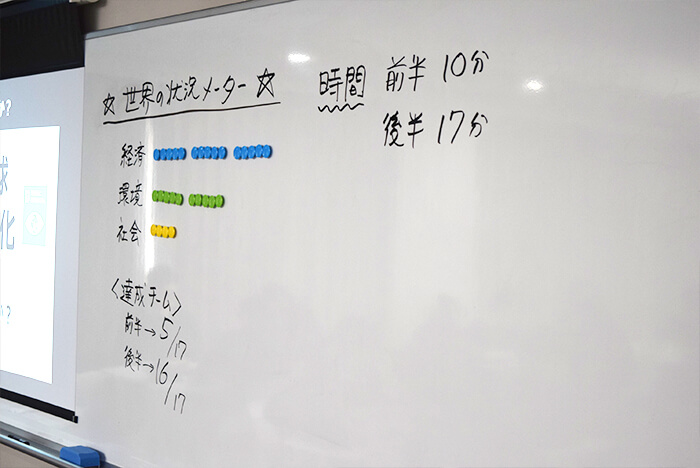 ☆世界の状況メーター☆
経済
環境
社会
〈達成チーム〉
前半→5/17
後半→16/17
時間 前半 10分
後半 17分
か?
球
化
?